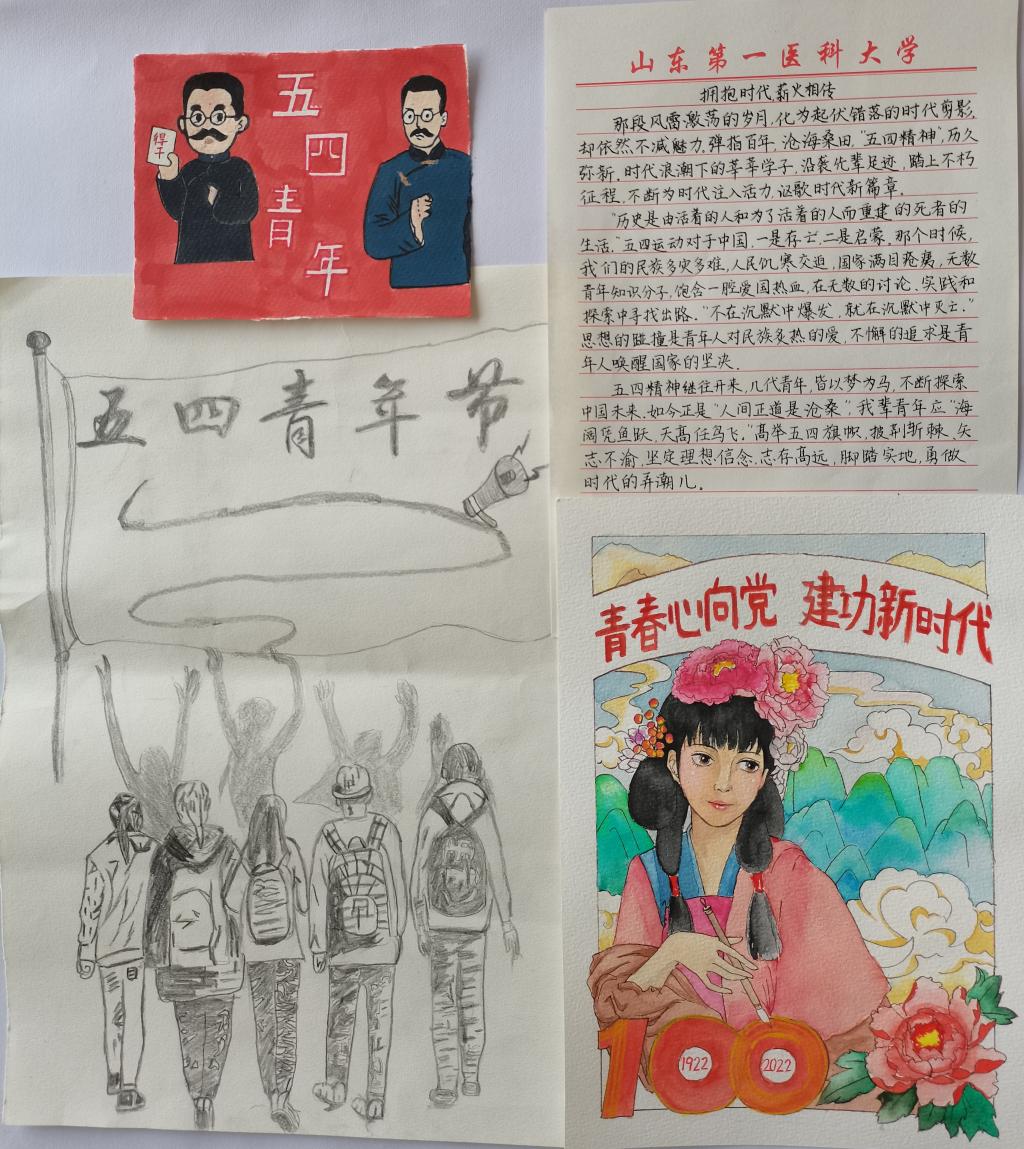 五四青年
得干
山东第一医科大学
拥抱时代薪火相传
那段风雷激荡的岁月,化为起伏错落的时代剪影,
却依然不减魅力,弹指百年,沧海桑田,"五四精神",历久
弥新,时代浪潮下的莘莘学子,沿袭先辈足迹,踏上不朽
征程,不断为时代注入活力,讴歌时代新篇章。
"历史是由活着的人和为了活着的人而重建的死者的
生活."五四运动对于中国,一是存亡,二是启蒙。那个时候,
我们的民族多灾多难,人民饥寒交迫,国家满目疮痍,无数
青年知识分子,饱含一腔爱国热血,在无数的讨论、实践和
探索中寻找出路。"不在沉默中爆发,就在沉默中灭亡."
思想的碰撞是青年人对民族炙热的爱,不懈的追求是青
年人唤醒国家的坚决.
五四精神继往开来,几代青年,皆以梦为马,不断探索
中国未来,如今正是"人间正道是沧桑",我辈青年应"海
阔凭鱼跃,天高任鸟飞."高举五四旗帜,披荆斩棘,矢
志不渝,坚定理想信念,志存高远,脚踏实地,勇做
时代的弄潮儿。
五四青年节
青春心向党 建功新时代
100
1922
2022